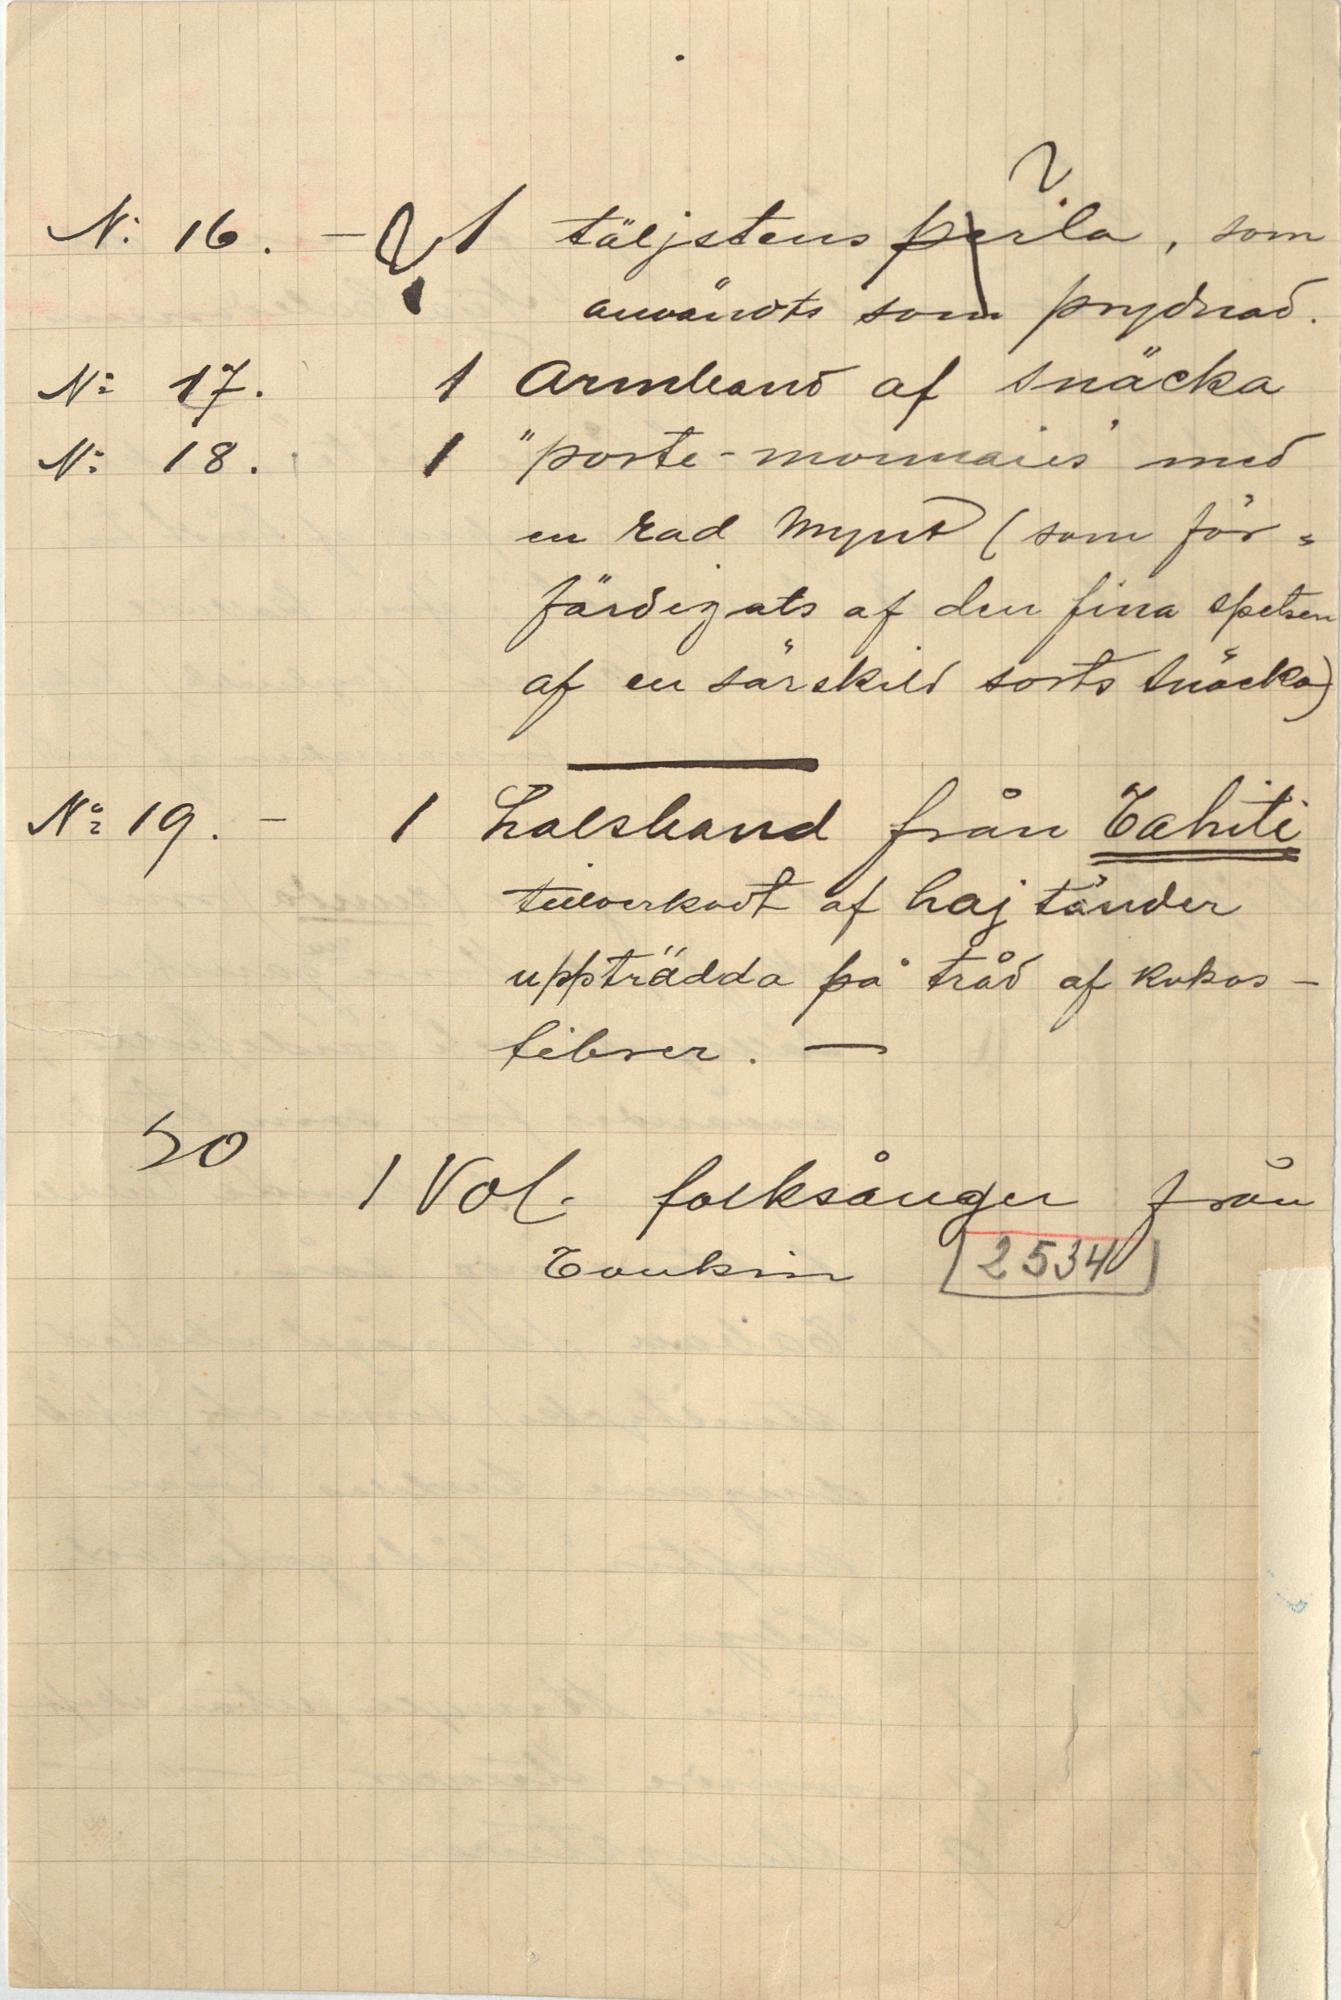 ?
N: 16. - ? 1 täljstens perla, som
användts som prydnad.
N: 17. 1 Armband af snäcka
N: 18. 1 "porte-monnaies" med
en rad mynt (som för=
färdigats af den fina spetsen
af en särskild sorts snäcka)
N: 19. - 1 Halsband från Tahiti
tillverkadt af haj tänder
uppträdda på tråd af kokos-
fibrer. -
20
1 Vol. folksånger från
Tonkin 2534